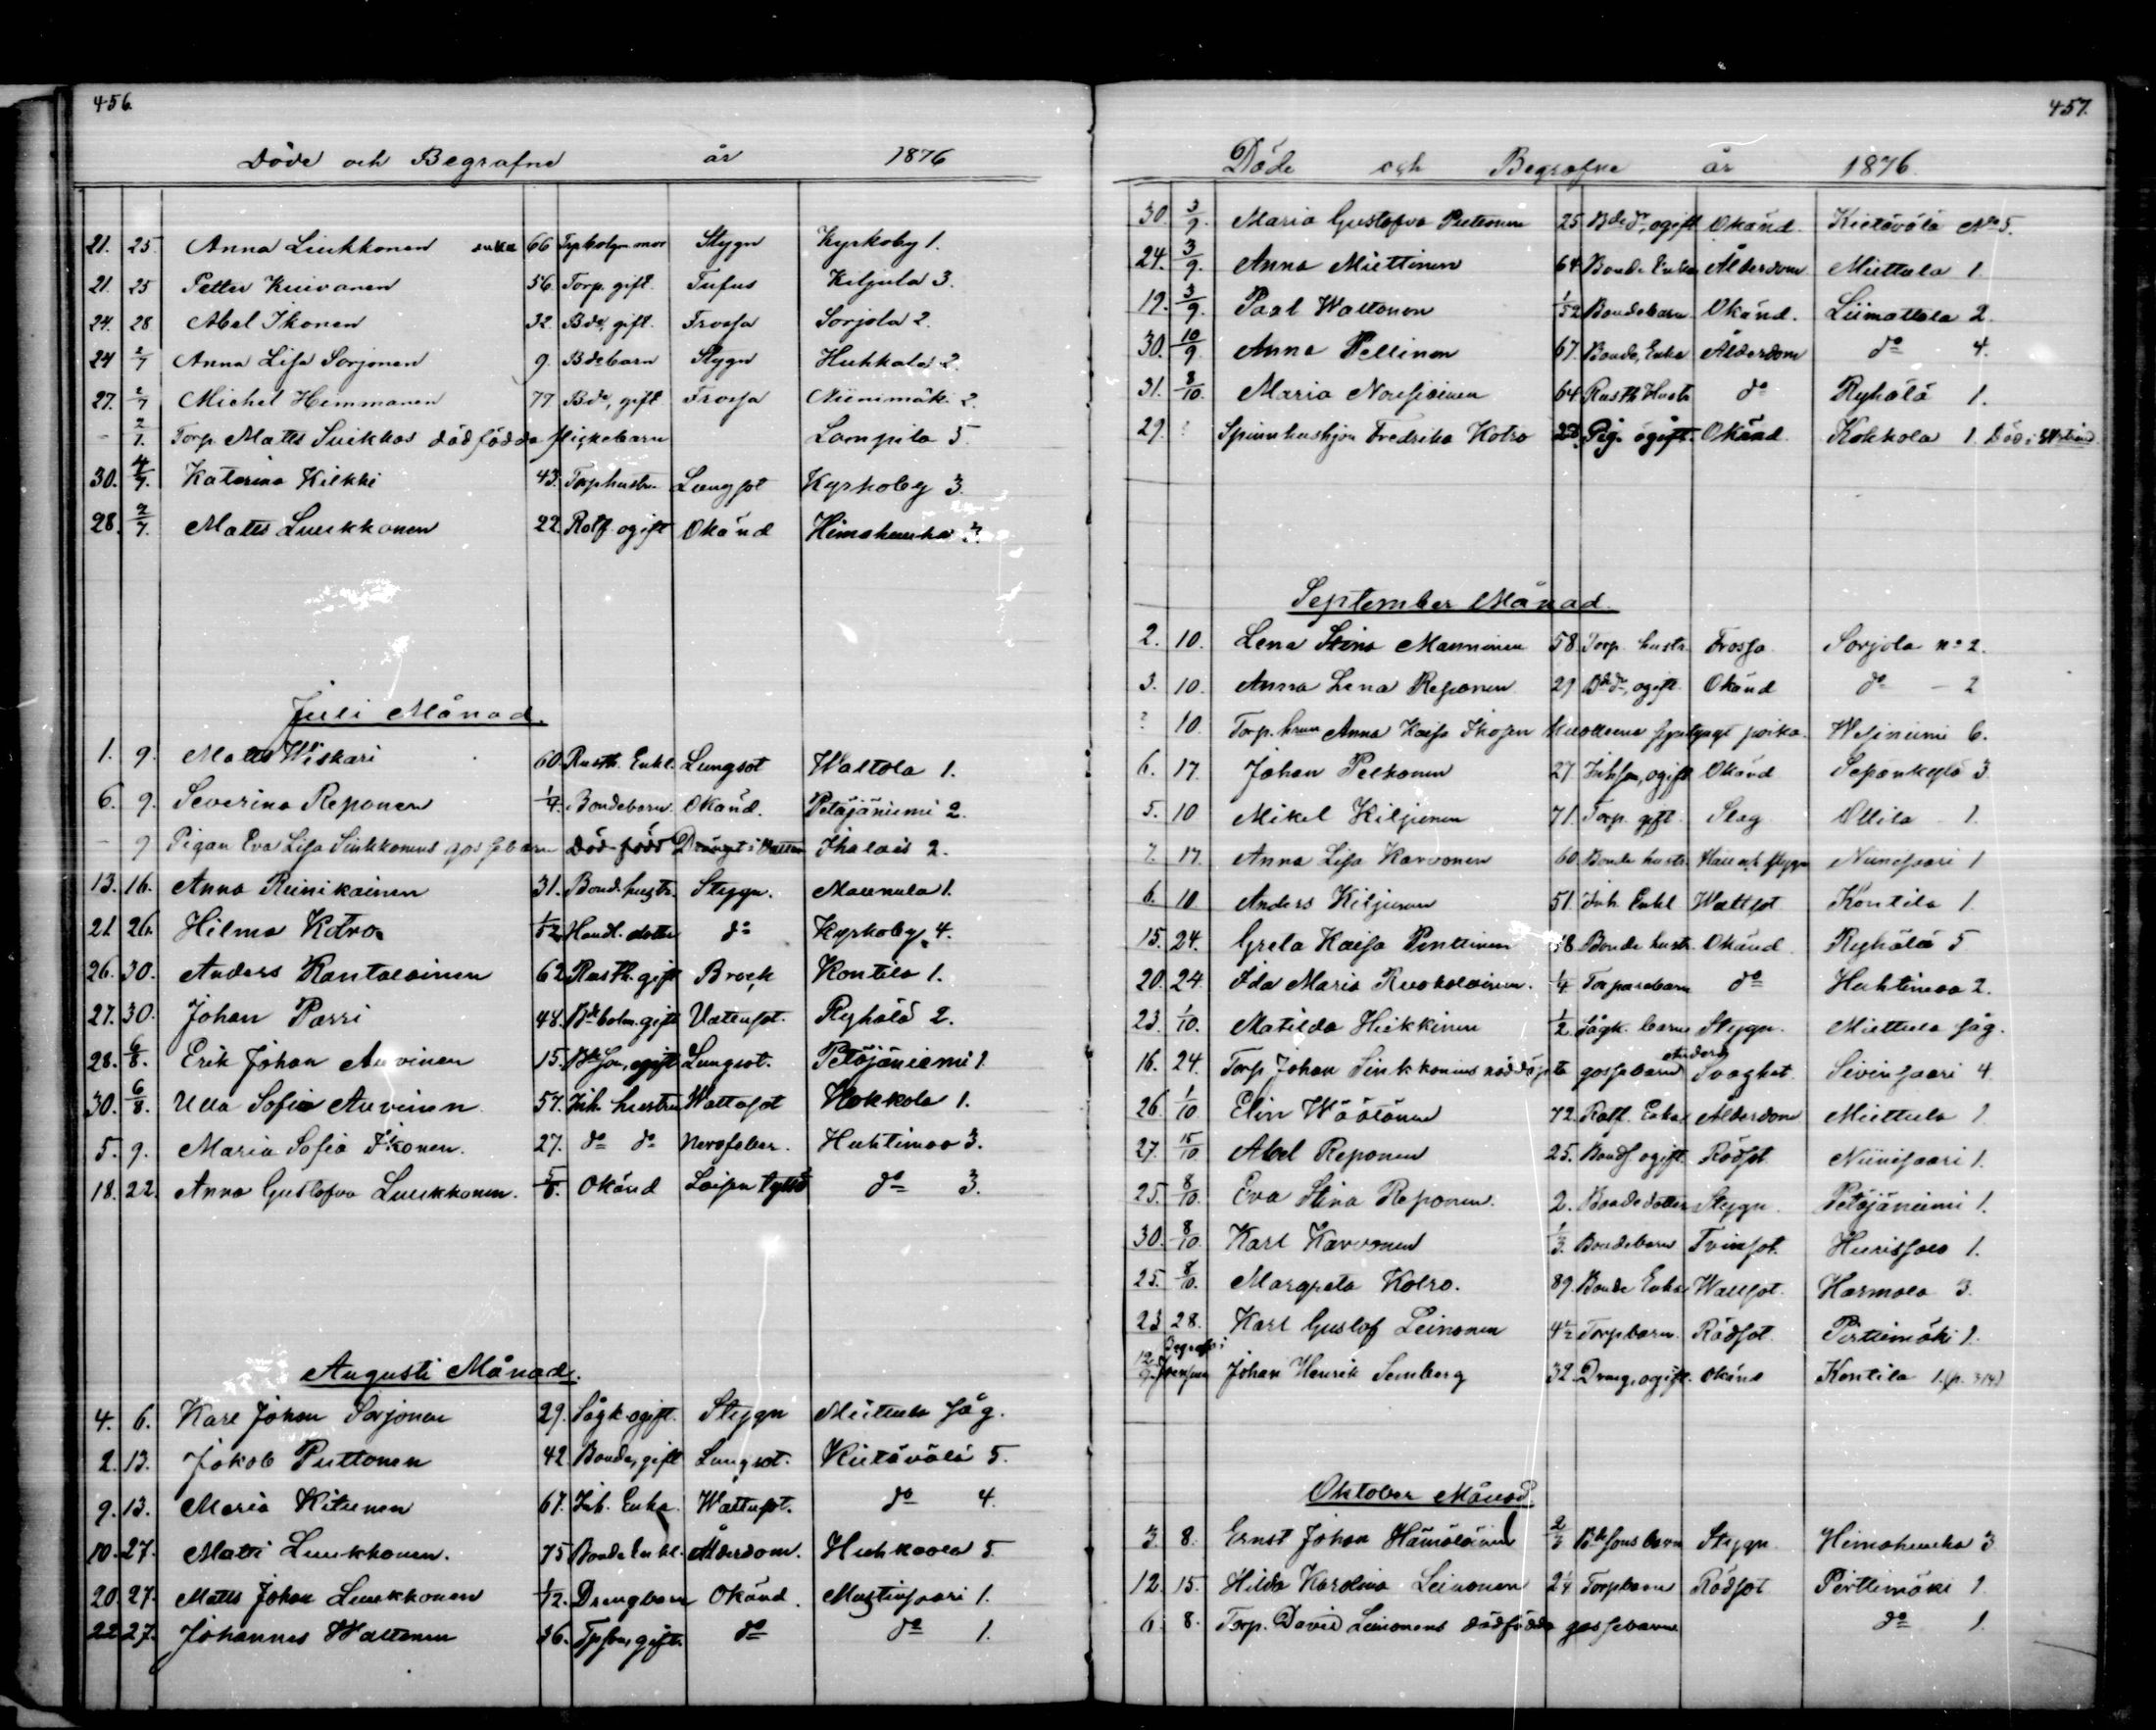 456.
Döde och Begrafne år 1876
21. 25. Anna Liukkonen enka 66 Stygn Kyrkoby 1.
21. 25 Petter Kuivanen 56. Torp. gift. Tufus Kiljula 3.
24. 28 Abel Ikonen 32. Bde, gift. Frossa Sorjola 2.
24 2/7 Anna Lisa Sorjonen 9. Bdebarn Stygn Huhkala 2.
27. 2/7 Michel Hemmanen 77 Bde, gift Frossa Niinimäk. 2.
- 2/7. Torp. Matts Suikkas dödfödda flickebarn Lampila 5.
30. 4/7. Katarina Kilkki 43. Torphustr. Lungsot Kyrkoby 3.
28. 2/7. Matts Luukkonen 22. Rotf. ogift Okänd Himahuuha 3.
Juli Månad.
1. 9. Matts Wiskari 60. Rusth. Enkl. Lungsot Waltola 1.
6. 9. Severina Reponen 1/4. Bondebarn Okänd. Petäjäniemi 2.
- 9 Pigan Eva Lisa Sinkkonens gossebarn Död född Ihalais 2.
13. 16. Anna Reinikainen 31. Bond. hustr. Stygn. Maunula 1.
21. 26. Hilma Kotro 1/52 Handl. dotter do Kyrkoby 4.
26. 30. Anders Rantalainen 62 Rusth. gift Brock Kontila 1.
27. 30. Johan Parri 48. gift Vattusot. Ryhälä 2.
28. 6/8. Erik Johan Auvinen 15. Bdeson, ogift Lungsot. Petäjäniemi 1
30. 6/8. Ulla Sofia Auvinen 57. Inh. hustru Wattusot Kokkola 1.
5. 9. Maria Sofia Ikonen. 27. do do Nervfeber. Huhtimaa 3.
18. 22. Anna Gustafva Luukkonen. Okänd do 3.
Augusti Månad.
4. 6. Karl Johan Sorjonen 29. Sågk. ogift. Stygn Miettula såg.
2. 13. Jakob Puttonen 42 Bonde, gift Lungsot. Kiitävälä 5.
9. 13. Maria Kitunen 67. Inh. Enka. Wattusot. do 4.
10. 27. Matti Luukkonen. 75 Bonde Enkl. Ålderdom. Huhkaala 5.
20. 27. Matts Johan Luukkonen 1/12. Drengbarn Okänd. Mustinsaari 1.
22 27. Johannes Waltonen 36. Tpson, gift. do do 1.
457.
Döde och Begrafne år 1876.
30. 3/9. Maria Gustafva Puttonen 25. Bdedr, ogift Okänd. Kiitävälä No 5.
24. 3/9. Anna Miettinen 64 Bonde Enka Ålderdom Miettula 1
19. 3/9. Paal Waltonen 1/52 Bondebarn Okänd. Liimattala 2.
30. 10/9. Anna Pellinen 67. Bonde, Enka Ålderdom do 4.
31. 8/10. Maria Nousiainen 64 Rusth Hustr do Ryhälä 1.
29. ? Spinnhushjon Fredrika Kotro 28. Pig. ogift. Okänd. Kokkola 1. Död i
September Månad.
2. 10. Lena Stina Manninen 58. Torp. hustr. Frossa Sorjola no 2.
3. 10. Anna Lena Reponen 29 Bdedr, ogift. Okänd do - 2
? 10 Torp. hrun Anna Kaisa Ikosen kuolleena syntynyt poika. Wesiniemi 6.
6. 17. Johan Pelkonen 27 Inhson, ogift Okänd Sepänkylä 3
5. 10 Mikel Kiljunen 71. Torp. gift. Slag Ollila 1.
7. 17. Anna Lisa Karvonen 60. Bonde hustr. stygn Niinisaari 1
6. 10. Anders Kiljunen 51. Inh. Enkl Wattsot Kontila 1.
15. 24. Greta Kaisa Penttinen 48 Bonde hustr. Okänd Ryhälä 5
20. 24. Ida Maria Ruokolainen. 1/4 Torparebarn do Huhtimaa 2.
23 1/10. Matilda Heikkinen 1/2. Sågk. barn Stygn. Miettula såg.
16. 24. Torp. Johan Sinkkonens nöddöpta gossebarn Anders Svaghet Sivinsaari 4.
26. 1/10 Elin Wäätänen 72. Rotf. Enka Ålderdom Miettula 1
27. 15/10 Abel Reponen 25. Bonds. ogift. Rödsot. Niinisaari 1.
25. 8/10. Eva Stina Reponen. 2. Bondedotter Stygn. Petäjäniemi 1.
30. 8/10. Karl Karvonen 1/3. Bondebarn Tvinsot. Hurissalo 1.
25. 8/10. Margreta Kotro. 89. Bonde Enka Wattsot. Harmala 3.
23 28. Karl Gustaf Leinonen 4½ Torpbarn. Rödsot. Pirttimäki 1.
12/9 Johan Henrik Semberg 32. Dreng. ogift. Okänd Kontila 1. (p. 314)
Oktober Månad
3. 8. Ernst Johan Hämäläinen 2/3 Bdesons barn Stygn Himahuuha 3
12. 15. Hilda Karolina Leinonen 2¼ Torpbarn Rödsot Pirttimäki 1
6. 8. Torp. David Leinonens dödfödda gossebarn do 1.